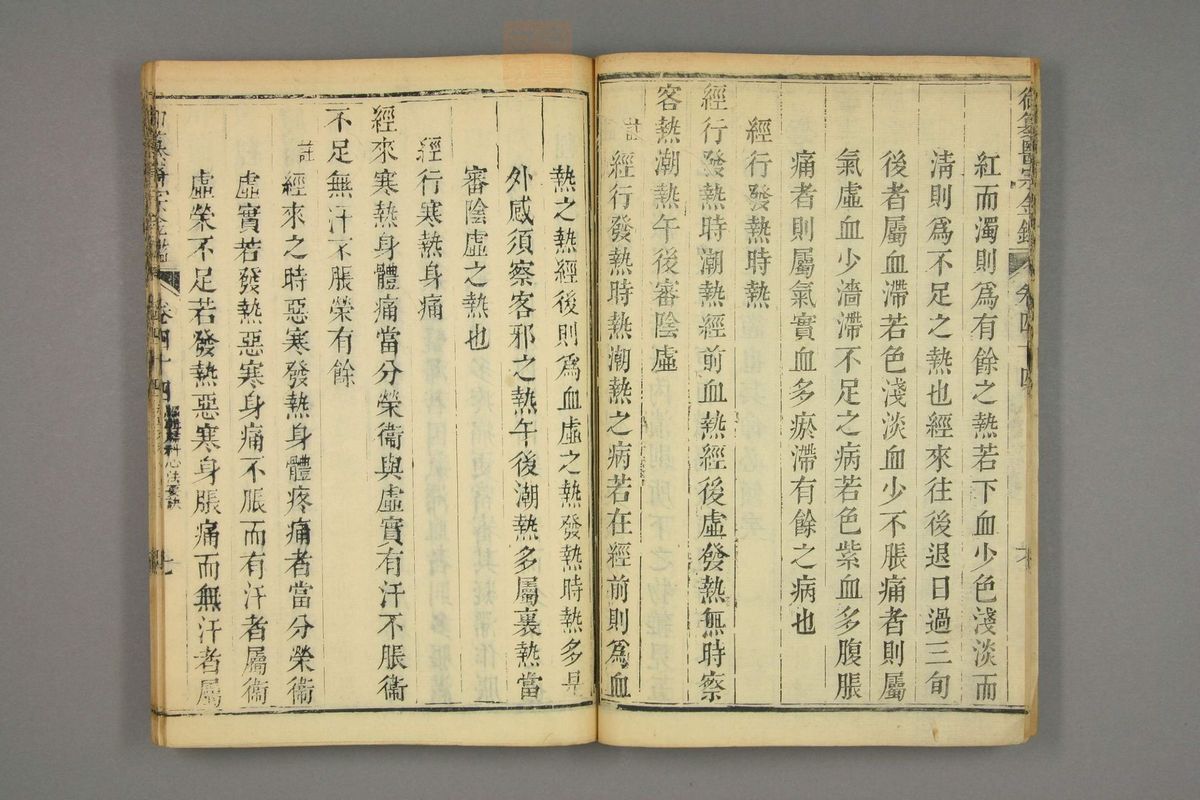 御纂醫宗金鑑 卷四十四
紅而濁則爲有餘之熱若下血少色淺淡而
淸則爲不足之熱也經來往後退日過三旬
後者屬血滯若色淺淡血少不脹痛者則屬
氣虛血少濇滯不足之病若色紫血多腹脹
痛者則屬氣實血多瘀滯有餘之病也
經行發熱時熱
經行發熱時潮熱經前血熱經後虛發熱無時察
客熱潮熱午後審陰虛
註 經行發熱時熱潮熱之病若在經前則爲血
熱之熱經後則爲血虛之熱發熱時熱多是
外感須察客邪之熱午後潮熱多屬裏熱當
審陰虛之熱也
經行寒熱身痛
經來寒熱身體痛當分榮衞與虛實有汗不脹衞
不足無汗不脹榮有餘
註 經來之時惡寒發熱身體疼痛者當分榮衞
虛實若發熱惡寒身痛不脹而有汗者屬衞
虛榮不足若發熱惡寒身脹痛而無汗者屬
卷四十四 科心法要訣 七